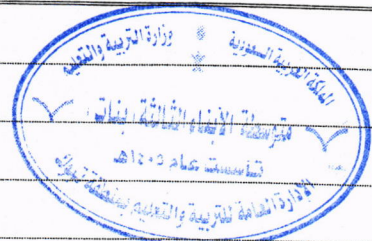 المملكة العربية السعودية
وزارة التربية والتعليم
متوسطة الأبناء الثالثة ( بنات )
تأسست عام ١٤٠٥هـ
الإدارة العامة للتربية والتعليم بمنطقة تبوك